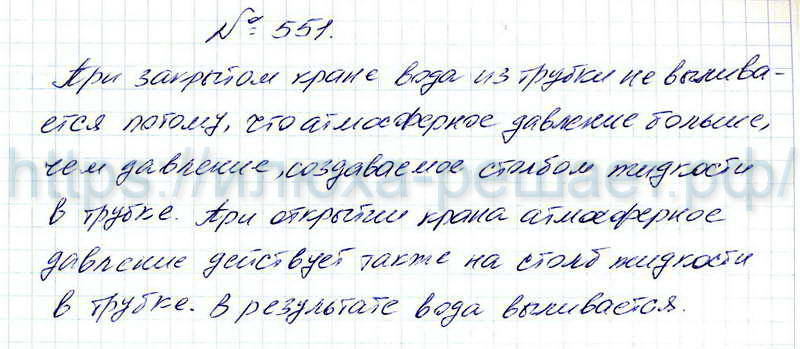 № 551.
При закрытом кране вода из трубки не вылива-
ется потому, что атмосферное давление больше,
чем давление, создаваемое столбом жидкости
https://илюха-решает.рф/
в трубке. При открытии крана атмосферное
давление действует также на столб жидкости
в трубке. В результате вода выливается.